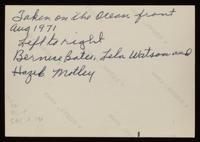 Taken on the Ocean front
Aug 1971
Left to right
Bernice Bates, Lela Watson and
Hazel Motley